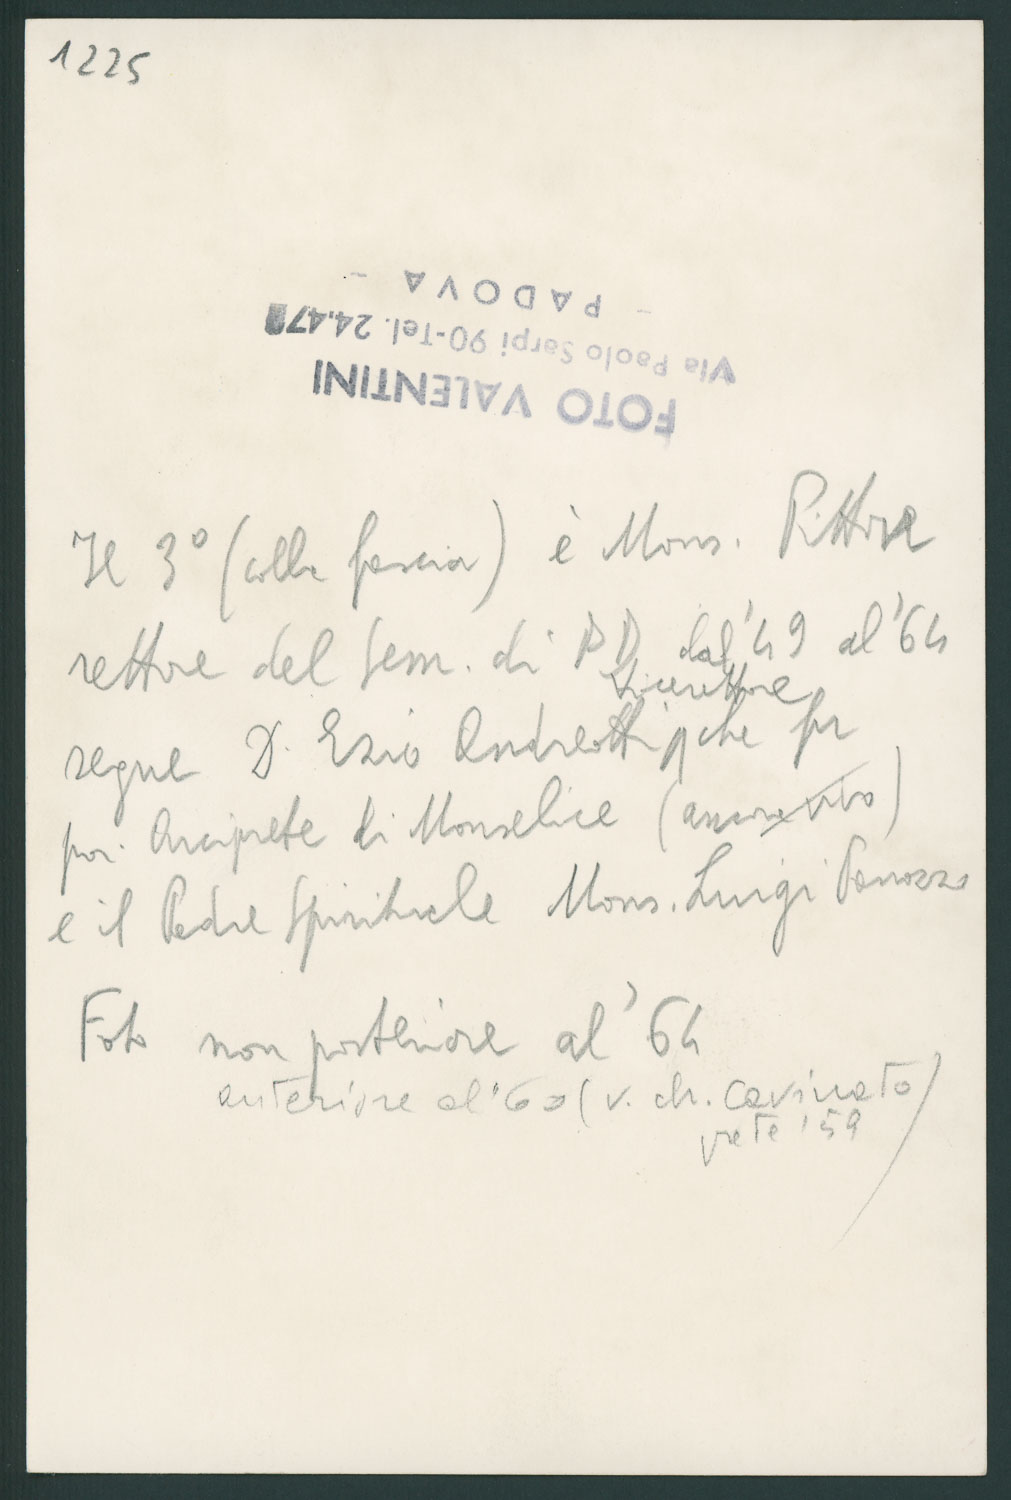 1225
FOTO VALENTINI
Via Paolo Sarpi 90-Tel. 24.47
- PADOVA -
Il 3° (colla fascia) è Mons. Pittore
rettore del Sem. di PD dal '49 al '64
Vicerettore
segue D. Ezio Andreotti che fu
poi Arciprete di Monselice (ancora vivo)
e il Padre Spirituale Mons. Luigi Panozzo
Foto non posteriore al '64
anteriore al '60 (v. ch. Cavinato)
prete '59